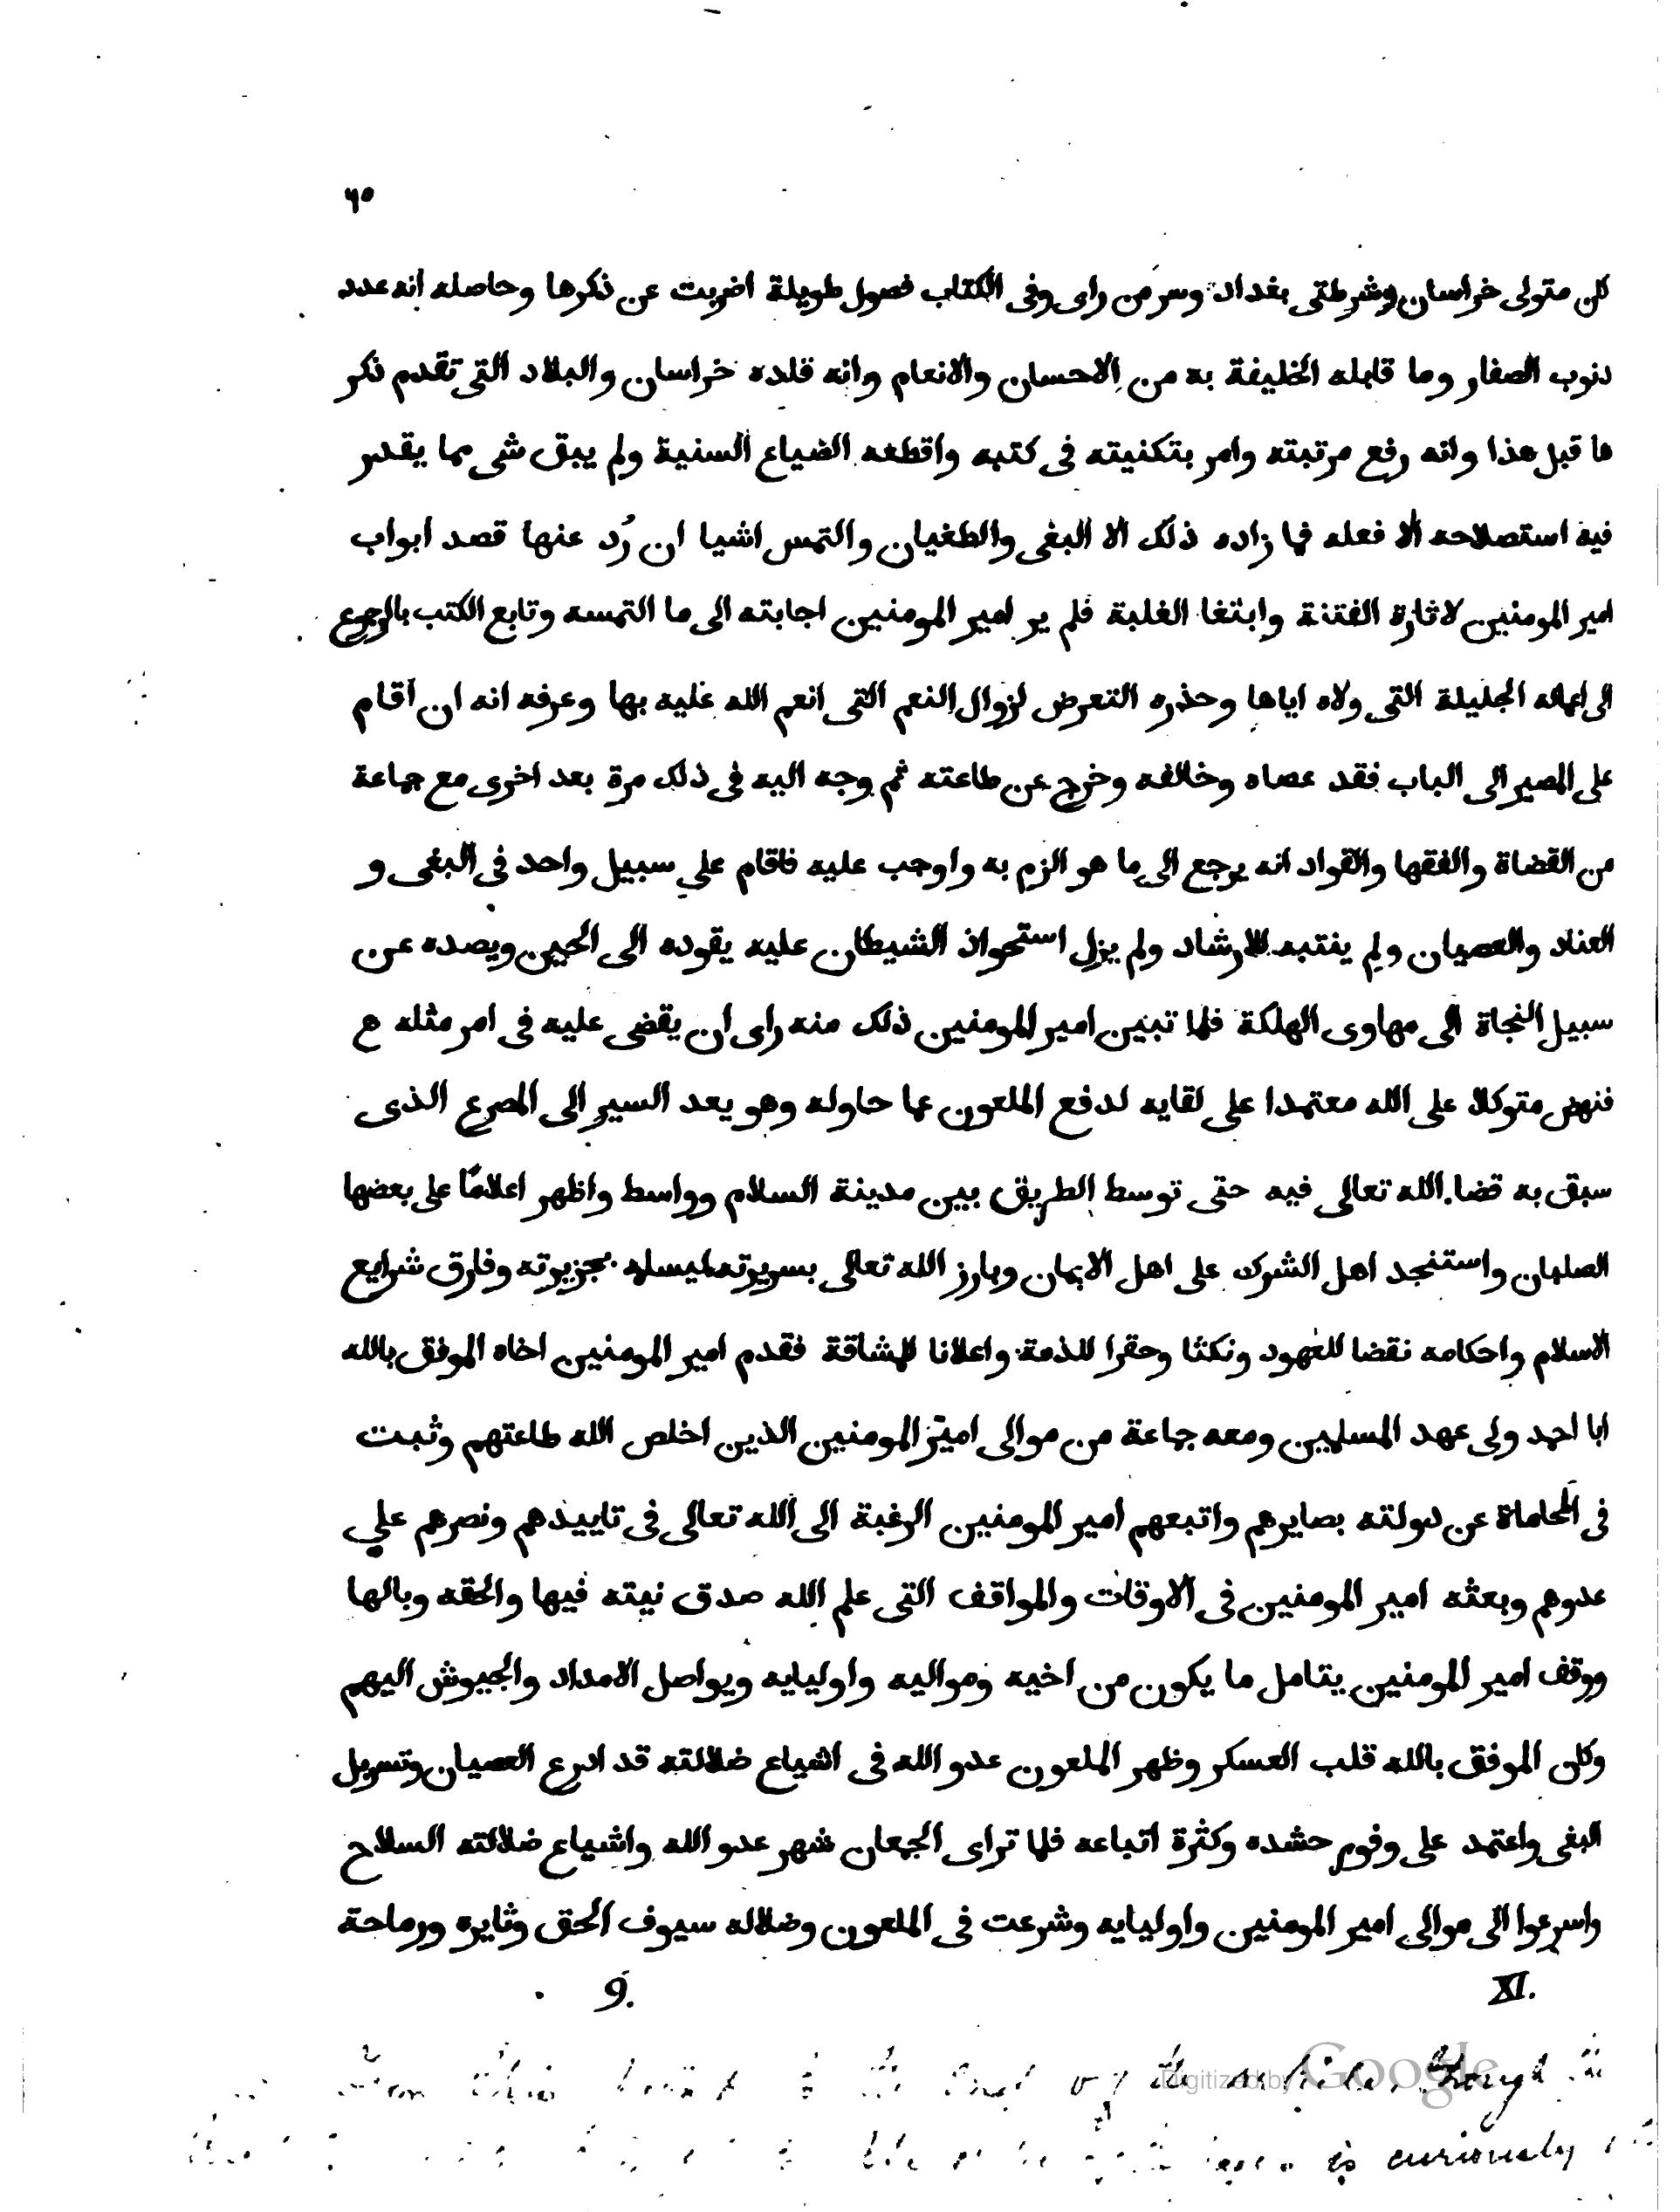 ٦٥
كان متولى خراسان وشرطتى بغداد وسر من راى وفى الكتاب فصول طويلة اضربت عن ذكرها وحاصله انه عدد
ذنوب الصفار وما قابله الخليفة به من الاحسان والانعام وانه قلده خراسان والبلاد التى تقدم ذكر
ها قبل هذا وانه رفع مرتبته وامر بتكنيته فى كتبه واقطعه الضياع السنية ولم يبق شى مما يقدر
فيه استصلاحه الا فعله فما زاده ذلك الا البغى والطغيان والتمس اشيا ان رُد عنها قصد ابواب
امير المومنين لاثارة الفتنة وابتغا الغلبة فلم ير امير المومنين اجابته الى ما التمسه وتابع الكتب بالرجوع
الى اعماله الجليلة التى ولاه اياها وحذره التعرض لزوال النعم التى انعم الله عليه بها وعرفه انه ان اقام
على المصير الى الباب فقد عصاه وخالفه وخرج عن طاعته ثم وجه اليه فى ذلك مرة بعد اخرى مع جماعة
من القضاة والفقها والقواد انه يرجع الى ما هو الزم به واوجب عليه فاقام على سبيل واحد فى البغى و
العناد والعصيان ولم ينتبه للارشاد ولم يزل استحواذ الشيطان عليه يقوده الى الحين ويصده عن
سبيل النجاة الى مهاوى الهلكة فلما تبين امير المومنين ذلك منه راى ان يقضى عليه فى امر مثله ه
فنهض متوكلا على الله معتمدا على لقايه لدفع الملعون عما حاوله وهو يعد السير الى المصرع الذى
سبق به قضا الله تعالى فيه حتى توسط الطريق بين مدينة السلام وواسط واظهر اعلامًا على بعضها
الصلبان واستنجد اهل الشرك على اهل الايمان وبارز الله تعالى بسريرته ليسلمه بجزيرته وفارق شرايع
الاسلام واحكامه نقضا للعهود ونكثا وحقرا للذمة واعلانا للمشاقة فقدم امير المومنين اخاه الموفق بالله
ابا احمد ولى عهد المسلمين ومعه جماعة من موالى امير المومنين الذين اخلص الله طاعتهم وثبت
فى المحاماة عن دولته بصايرهم واتبعهم امير المومنين الرغبة الى الله تعالى فى تاييدهم ونصرهم على
عدوهم وبعثه امير المومنين فى الاوقات والمواقف التى علم الله صدق نيته فيها والحقه وبالها
ووقف امير المومنين يتامل ما يكون من اخيه ومواليه واوليايه ويواصل الامداد والجيوش اليهم
وكان الموفق بالله قلب العسكر وظهر الملعون عدو الله فى اشياع ضلالته قد ادرع العصيان وتسربل
البغى واعتمد على وفور حشده وكثرة اتباعه فلما تراى الجمعان شهر عدو الله واشياع ضلالته السلاح
واسرعوا الى موالى امير المومنين واوليايه وشرعت فى الملعون وضلاله سيوف الحق وثايره ورماحة
XI. 9.
Digitized by Google
is curiously